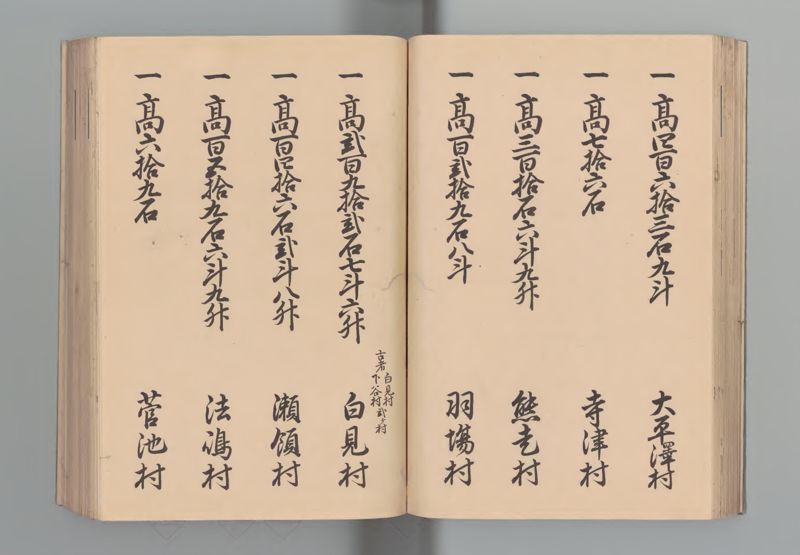 一 髙四百六拾三石九斗 大平澤村
一 髙七拾六石 寺津村
一 髙三百拾石六斗九升 熊走村
一 髙百貳拾九石八斗 羽場村
古者 白見村 下谷村 貳ヶ村
一 髙貳百九拾貳石七斗六升 白見村
一 髙百四拾六石貳斗八升 瀬領村
一 髙百五拾九石六斗九升 法嶋村
一 髙六拾九石 菅池村